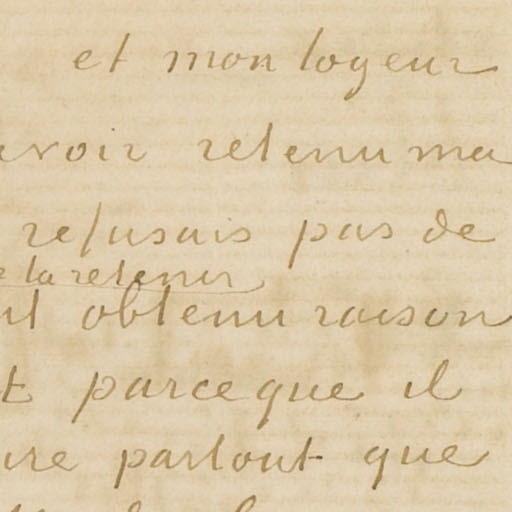 et mon logeur
avoir retenu ma
refusais pas de
la retenir
obtenu raison
parceque il
partout que